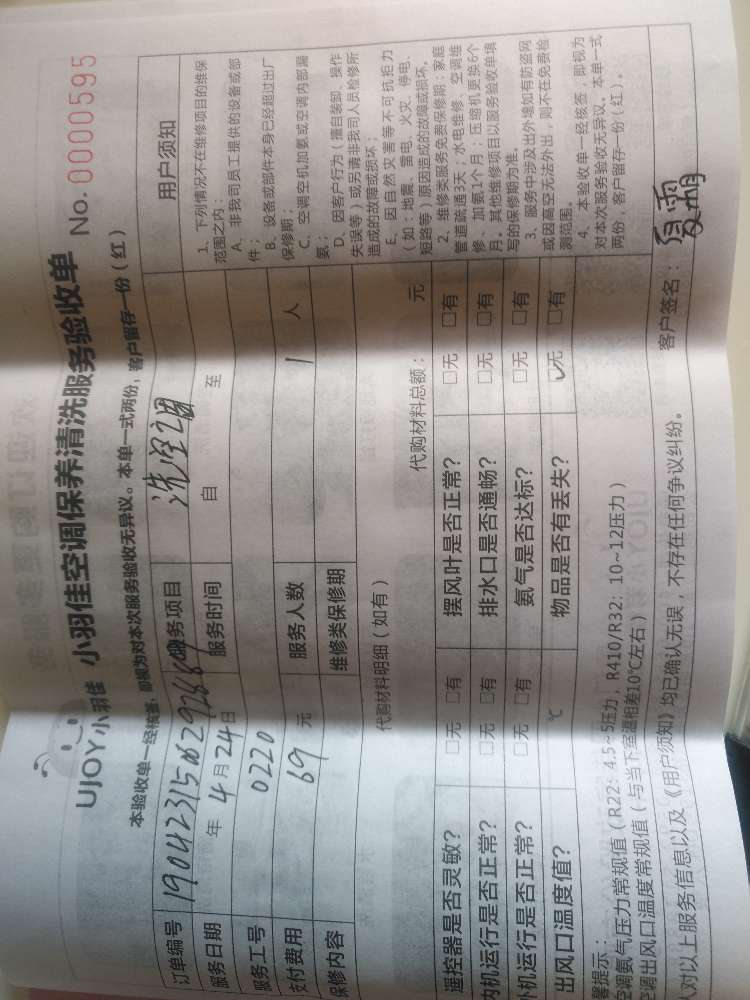 UJOY小羽佳 小羽佳空调保养清洗服务验收单 No. 0000595
本验收单一经核签，即视为对本次服务验收无异议。本单一式两份，客户留存一份（红）
订单编号 服务项目 洗空调
服务日期 年 4 月 24 日 服务时间 自 至
服务工号 0220
支付费用 69 元 服务人数 1 人
保修内容 维修类保修期
代购材料明细（如有） 代购材料总额： 元
遥控器是否灵敏？ □无 □有 摆风叶是否正常？ □无 □有
内机运行是否正常？ □无 □有 排水口是否通畅？ □无 □有
外机运行是否正常？ □无 □有 氨气是否达标？ □无 □有
出风口温度值？ ℃ 物品是否有丢失？ ☑无 □有
用户须知
1、下列情况不在维修项目的维保
范围之内：
A、非我司员工提供的设备或部
件；
B、设备或部件本身已经超过出厂
保修期；
C、空调空机加氨或空调内部漏
氨；
D、因客户行为（擅自装卸、操作
失误等）或另请非我司人员检修所
造成的故障或损坏；
E、因自然灾害等不可抗拒力
（如：地震、雷电、火灾、停电、
短路等）原因造成的故障或损坏。
2、维修类服务免费保修期：家庭
管道疏通3天；水电维修、空调维
修、加氨1个月；压缩机更换6个
月。其他维修项目以服务验收单填
写的保修期为准。
3、服务中涉及出外墙如有防盗网
或因高空无法外出，则不在免费检
测范围。
4、本验收单一经核签，即视为
对本次服务验收无异议。本单一式
两份，客户留存一份（红）。
馨提示：
调氨气压力常规值（R22：4.5~5压力，R410/R32：10~12压力）
调出风口温度常规值（与当下室温相差10℃左右）
对以上服务信息以及《用户须知》均已确认无误，不存在任何争议纠纷。 客户签名：